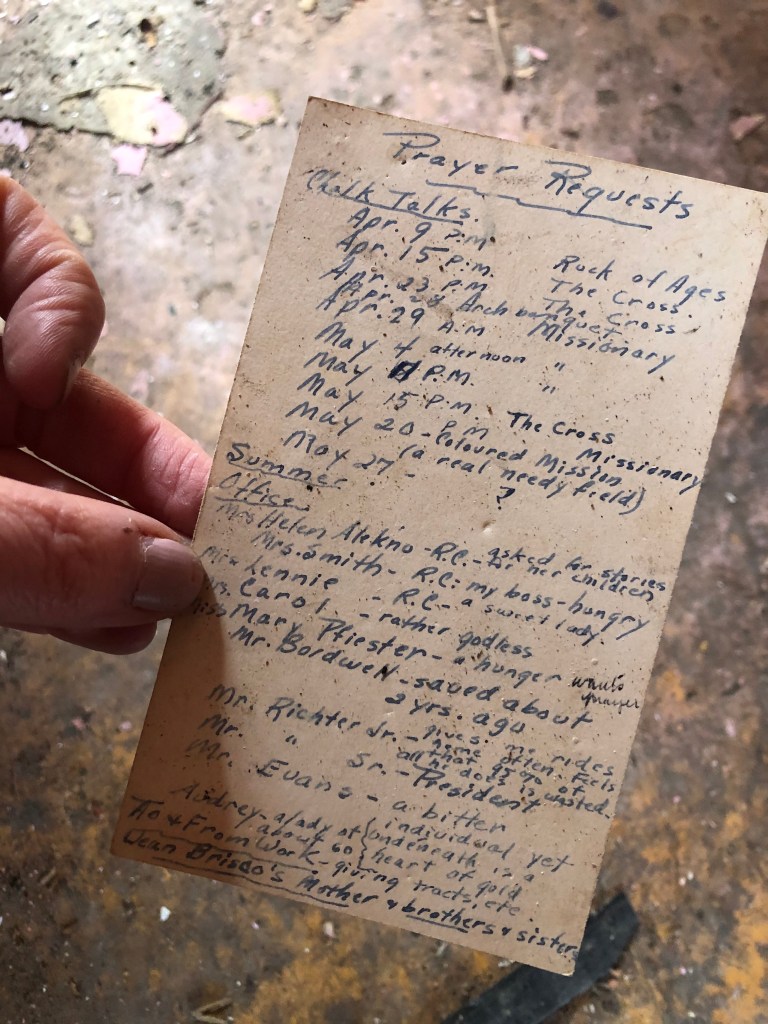 Prayer Requests
Chalk Talks.
Apr. 9 P.M. Rock of Ages
Apr. 15 P.M. The Cross.
Apr. 23 P.M The Cross
Apr. 28 Arch banquet
Apr. 29 A.M Missionary
May 4 afternoon "
May P.M. "
May 15 P.M. The Cross
May 20 - P.M Missionary
Coloured Mission
(a real needy field)
May 27 - ?
Summer
Office
Mrs Helen Alekno - R.C. - asked for stories
for her children
Mrs. Smith - R.C. - my boss - hungry
Lennie - R.C. - a sweet lady.
Mrs. Carol - rather godless
Miss Mary Pfiester - a hunger wants
prayer
Mr. Bordwell - saved about
2 yrs. ago
Mr. Richter Jr. - gives me rides
home often. Feels
that 95% of
all he does is wasted.
Mr. " Sr. - President
Mr. Evans - a bitter
individual yet
undeneath is a
heart of gold
Audrey - a lady of
about 60
To & From Work - giving tracts, etc.
Jean Brisco's Mother & brothers & sister.